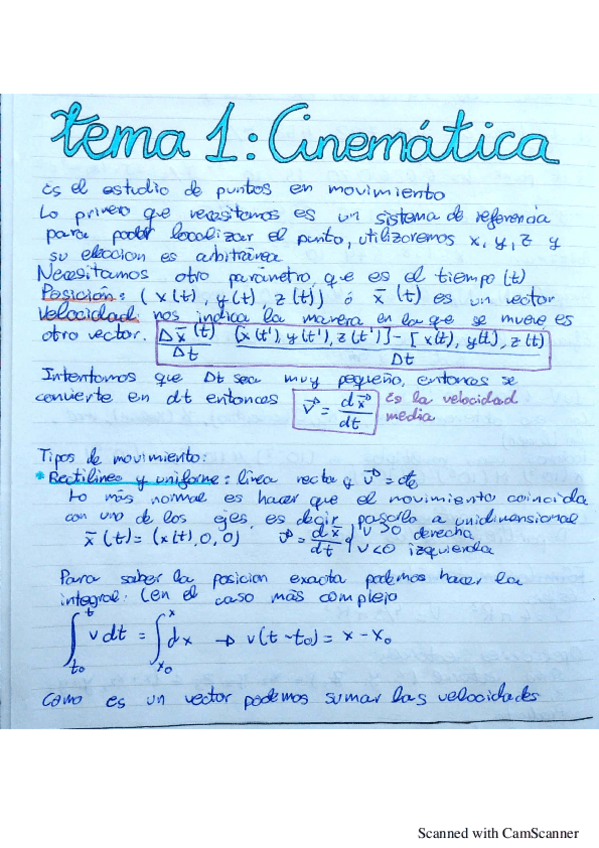 tema 1: Cinemática
es el estudio de puntos en movimiento
Lo primero que necesitamos es un sistema de referencia
para poder localizar el punto, utilizaremos x, y, z y
su elección es arbitraria
Necesitamos otro parámetro, que es el tiempo (t)
Posición: (x(t), y(t), z(t)) ó x̄(t) es un vector
Velocidad nos indica la manera en la que se mueve es
otro vector. Δx̄(t)/Δt [x(t'), y(t'), z(t')] - [x(t), y(t), z(t)/Δt
Intentamos que Δt sea muy pequeño, entonces se
convierte en dt entonces v⃗ = dx⃗/dt es la velocidad
media
Tipos de movimiento:
* Rectilíneo y uniforme: línea recta y v⃗ = cte
Lo más normal es hacer que el movimiento coincida
con uno de los ejes, es decir, pasarlo a unidimensional
x̄(t) = (x(t), 0, 0) v⃗ = dx̄/dt { v>0 derecha
v<0 izquierda
Para saber la posicion exacta podemos hacer la
integral. (en el caso más complejo
∫ₜ₀ᵗ v dt = ∫ₓ₀ˣ dx → v(t-t₀) = x - x₀
Como es un vector podemos sumar las velocidades
Scanned with CamScanner